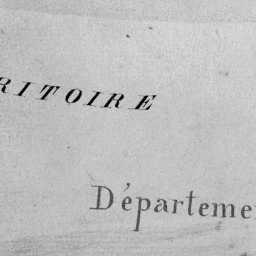 RITOIRE
Départeme